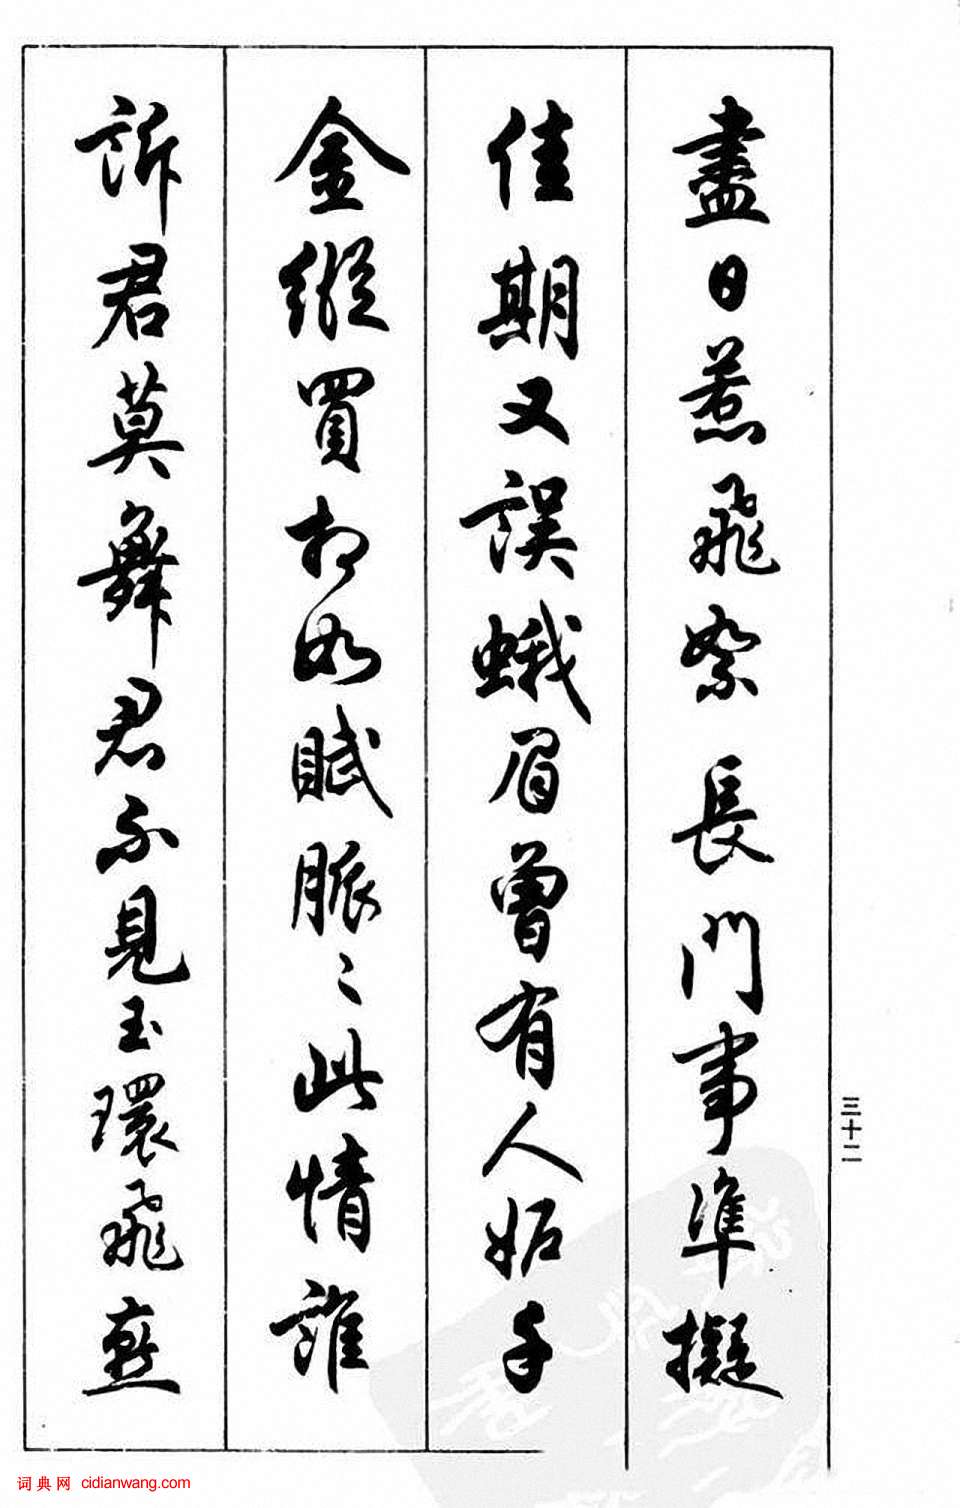 盡日惹飛絮長門事準擬
佳期又誤蛾眉曾有人妬千
金縱買相如賦脈〻此情誰
訴君莫舞君不見玉環飛燕
三十二
词典网 cidianwang.com